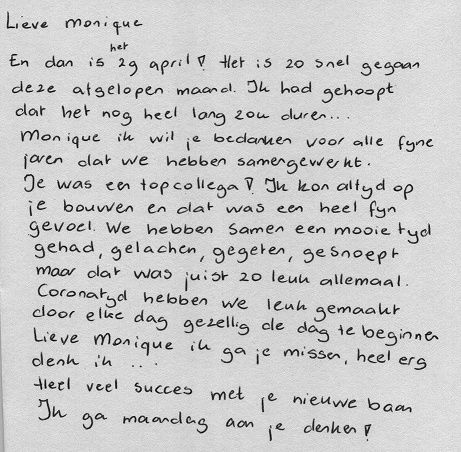 Lieve Monique
En dan is het 29 april! Het is zo snel gegaan
deze afgelopen maand. Ik had gehoopt
dat het nog heel lang zou duren...
Monique ik wil je bedanken voor alle fyne
jaren dat we hebben samengewerkt.
Je was een topcollega! Ik kon altyd op
je bouwen en dat was een heel fyn
gevoel. We hebben samen een mooie tyd
gehad, gelachen, gegeten, gesnoept
maar dat was juist zo leuk allemaal.
Coronatyd hebben we leuk gemaakt
door elke dag gezellig de dag te beginnen
Lieve Monique ik ga je missen, heel erg
denk ik ...
Heel veel succes met je nieuwe baan
Ik ga maandag aan je denken!